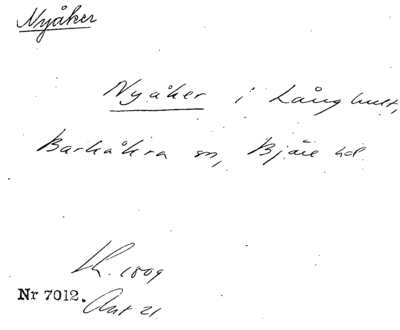 Nyåker
Nyåker i Långhult,
Barkåkra sn, Bjäre hd
Lk. 1809
Nr 7012. Akt 21